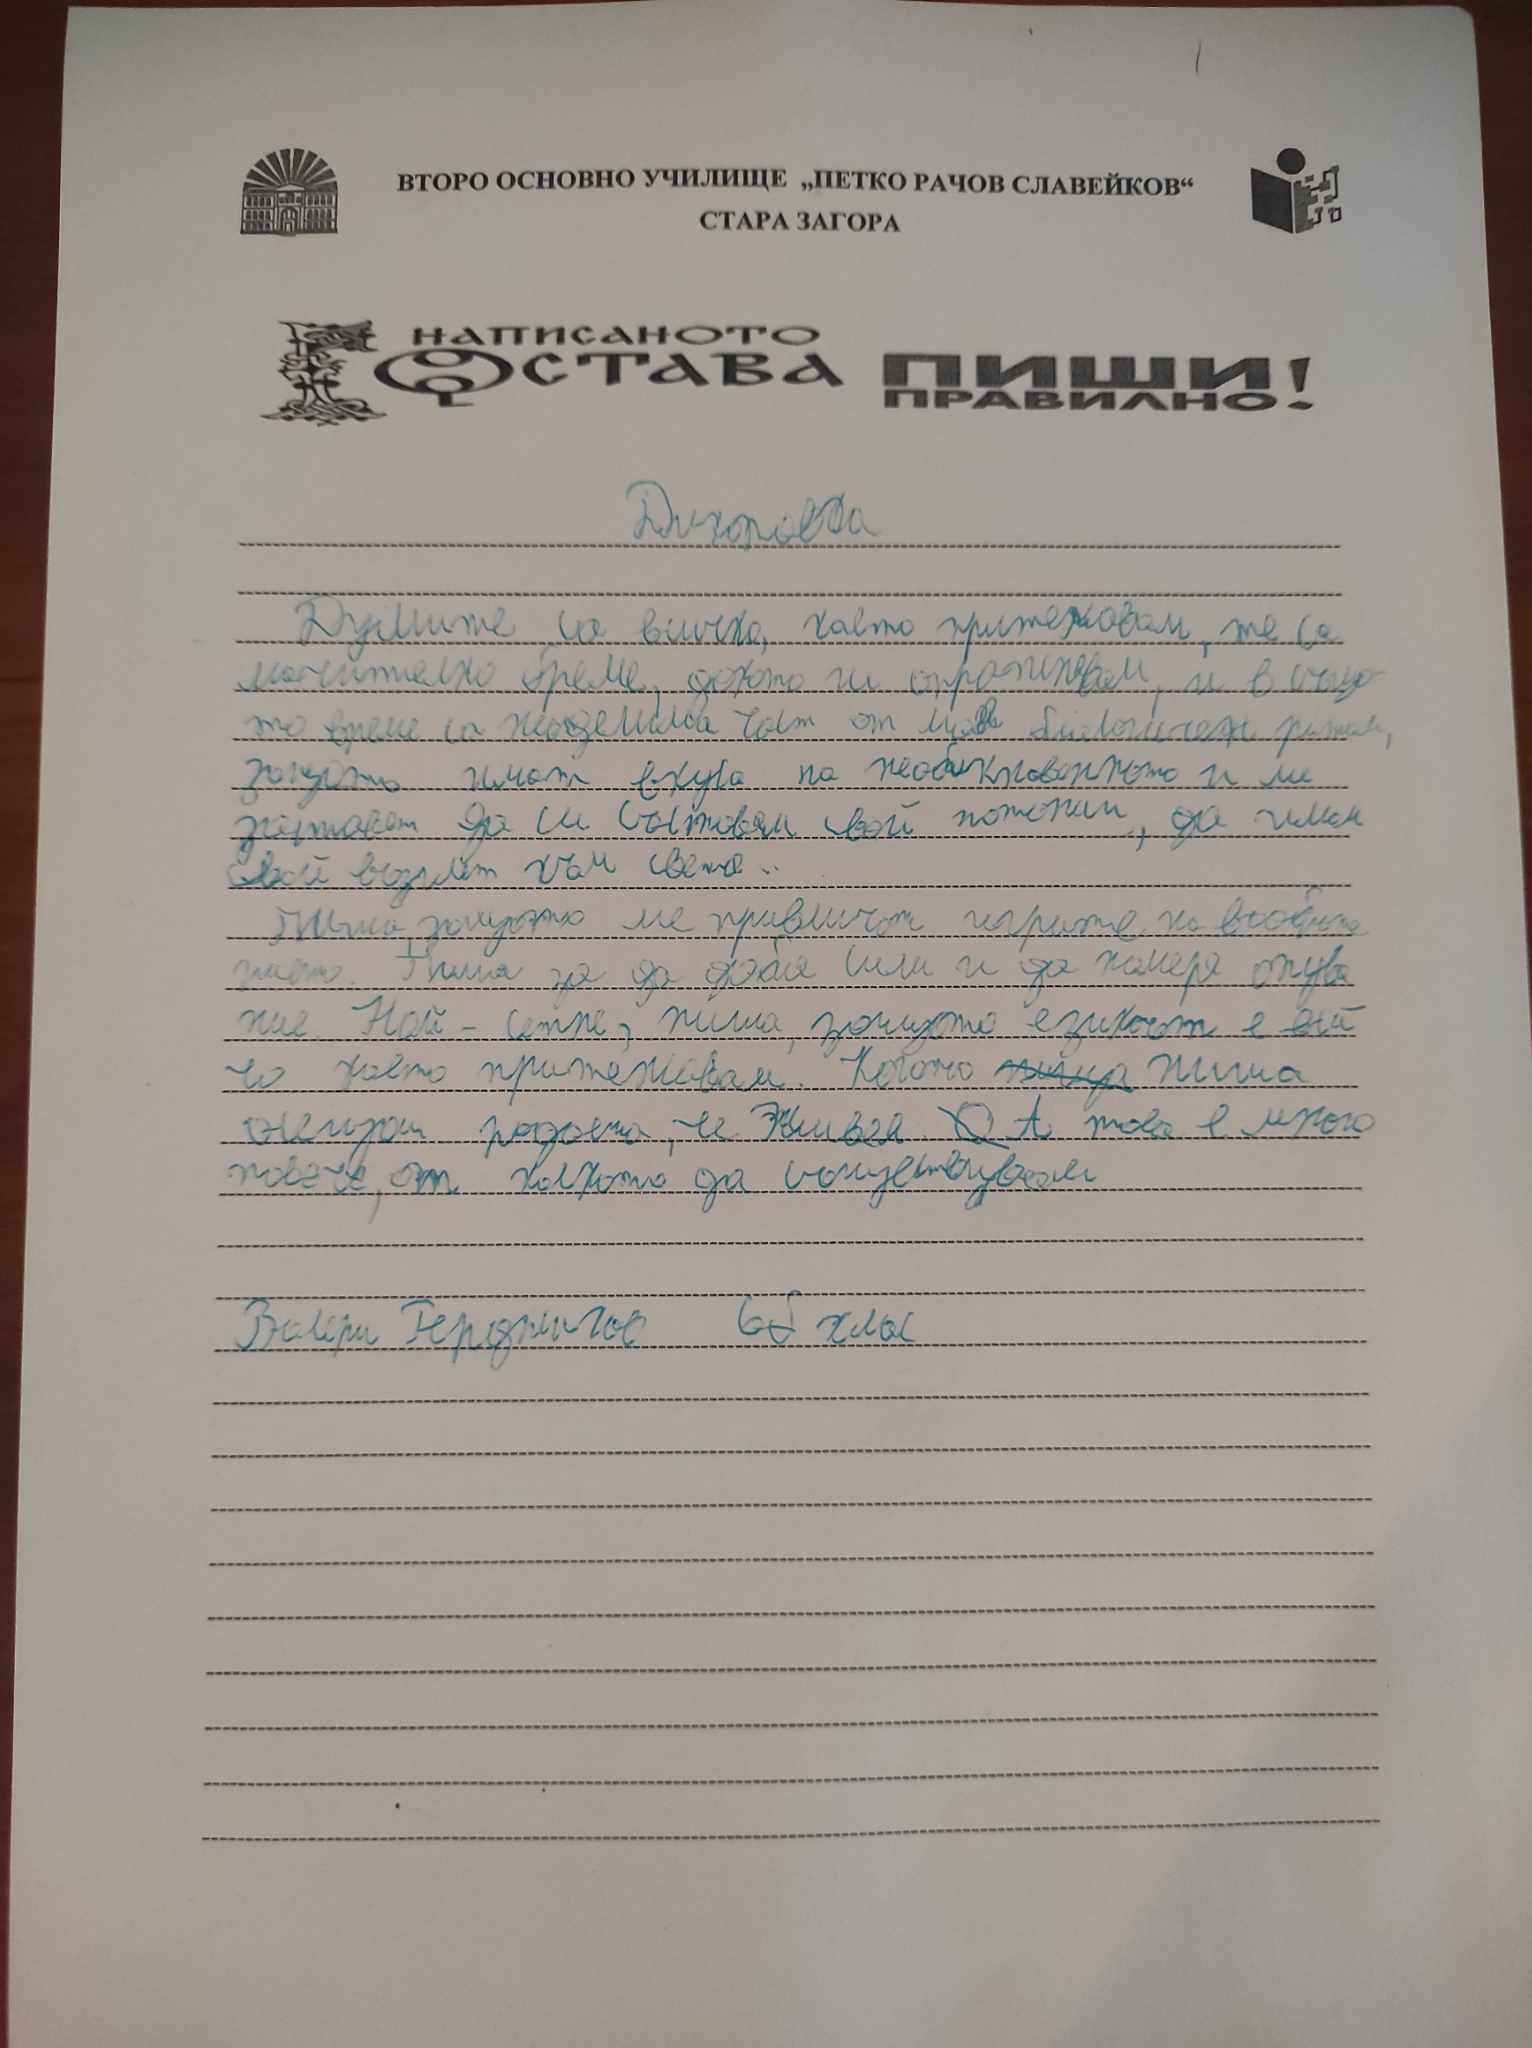 ВТОРО ОСНОВНО УЧИЛИЩЕ „ПЕТКО РАЧОВ СЛАВЕЙКОВ“
СТАРА ЗАГОРА
НАПИСАНОТО
ОСТАВА ПИШИ
ПРАВИЛНО!
Диктовка
Думите са всичко, което притежавам, те са
мъчително време, докато ги отразявам, и в също
то време са неделима част от моя биологичен ритъм,
защото имат вкуса на необикновеното и ме
карат да си съставям свой
свой възглед към света.
Пиша, защото ме привличат игрите на въобра
Пиша за да добия сили и да намеря опува
ние. Най-сетне, пиша, защото езикът е вси
чо което притежавам. Когато пиша
радостта, че живея. А това е много
повече, от колкото да съществувам
Валери 6б клас